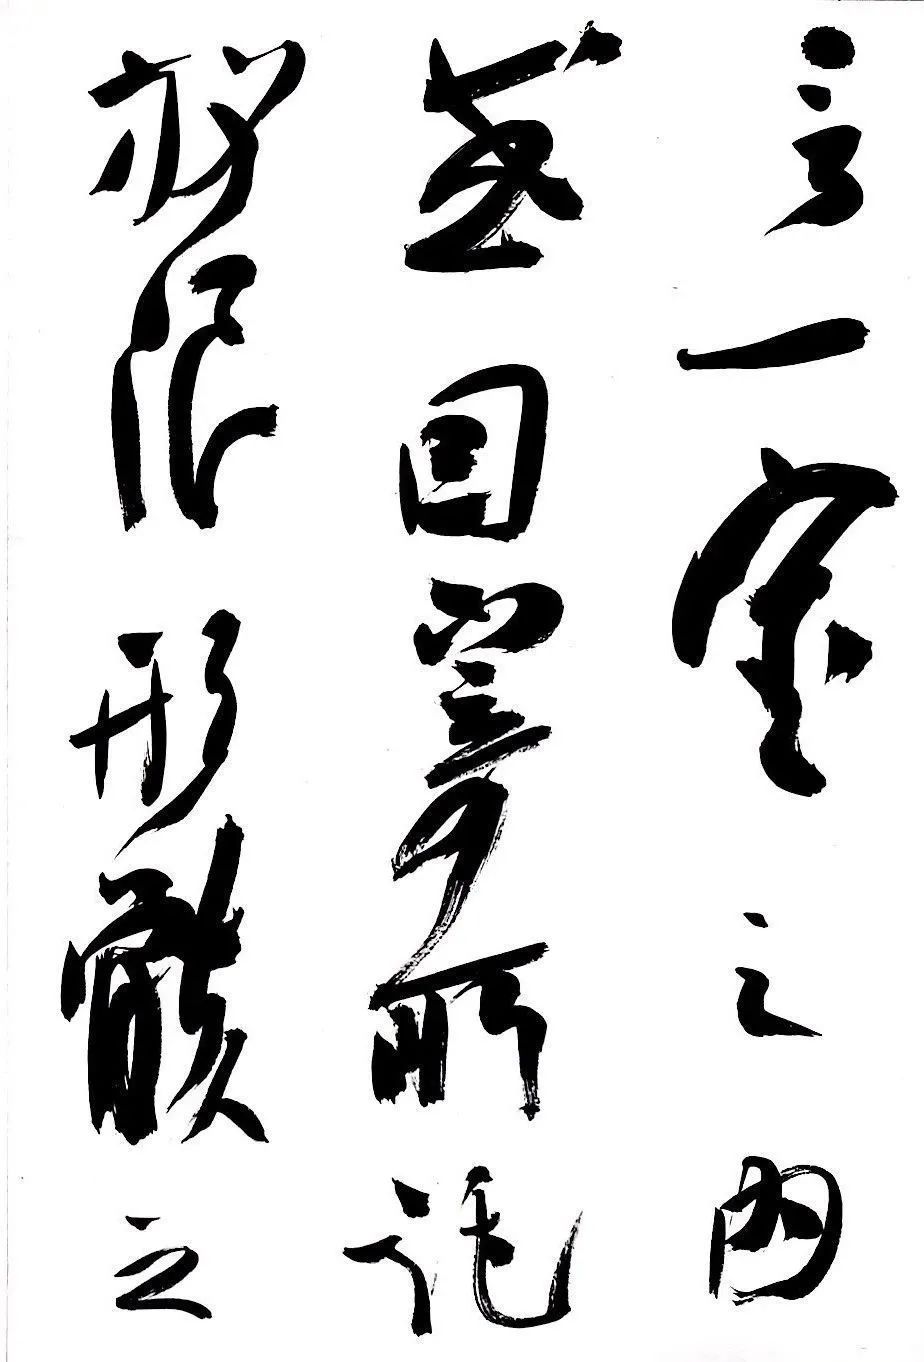 言一室之内
或因寄所託
放浪形骸之